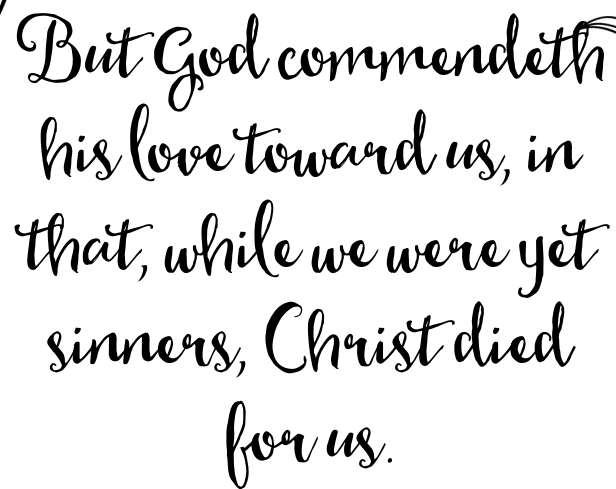 But God commendeth
his love toward us, in
that, while we were yet
sinners, Christ died
for us.